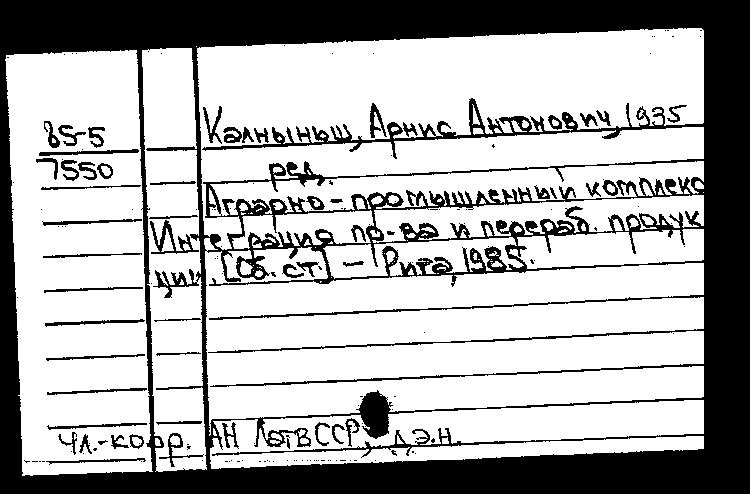 85-5
7550
Калныньш, Арнис Антонович, 1935
ред.
Аграрно-промышленный комплекс
Интеграция пр-ва и перераб. продук
ции. [Сб. ст.] — Рига, 1985.
Чл.-корр. АН ЛатвССР, д.э.н.